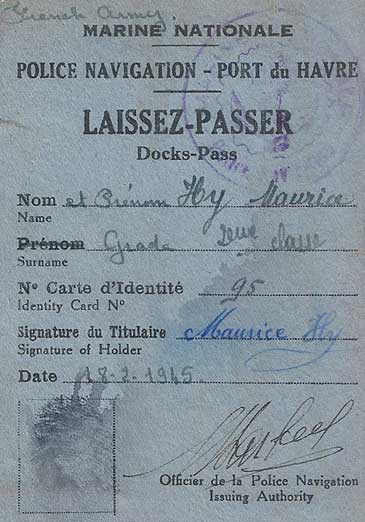 French Army
MARINE NATIONALE
POLICE NAVIGATION - PORT du HAVRE
LAISSEZ-PASSER
Docks-Pass
Nom et Prénom Hy Maurice
Name
Prénom Grade 2eme classe
Surname
N° Carte d'Identité 95
Identity Card N°
Signature du Titulaire Maurice Hy
Signature of Holder
Date 18-2-1945
Officier de la Police Navigation
Issuing Authority